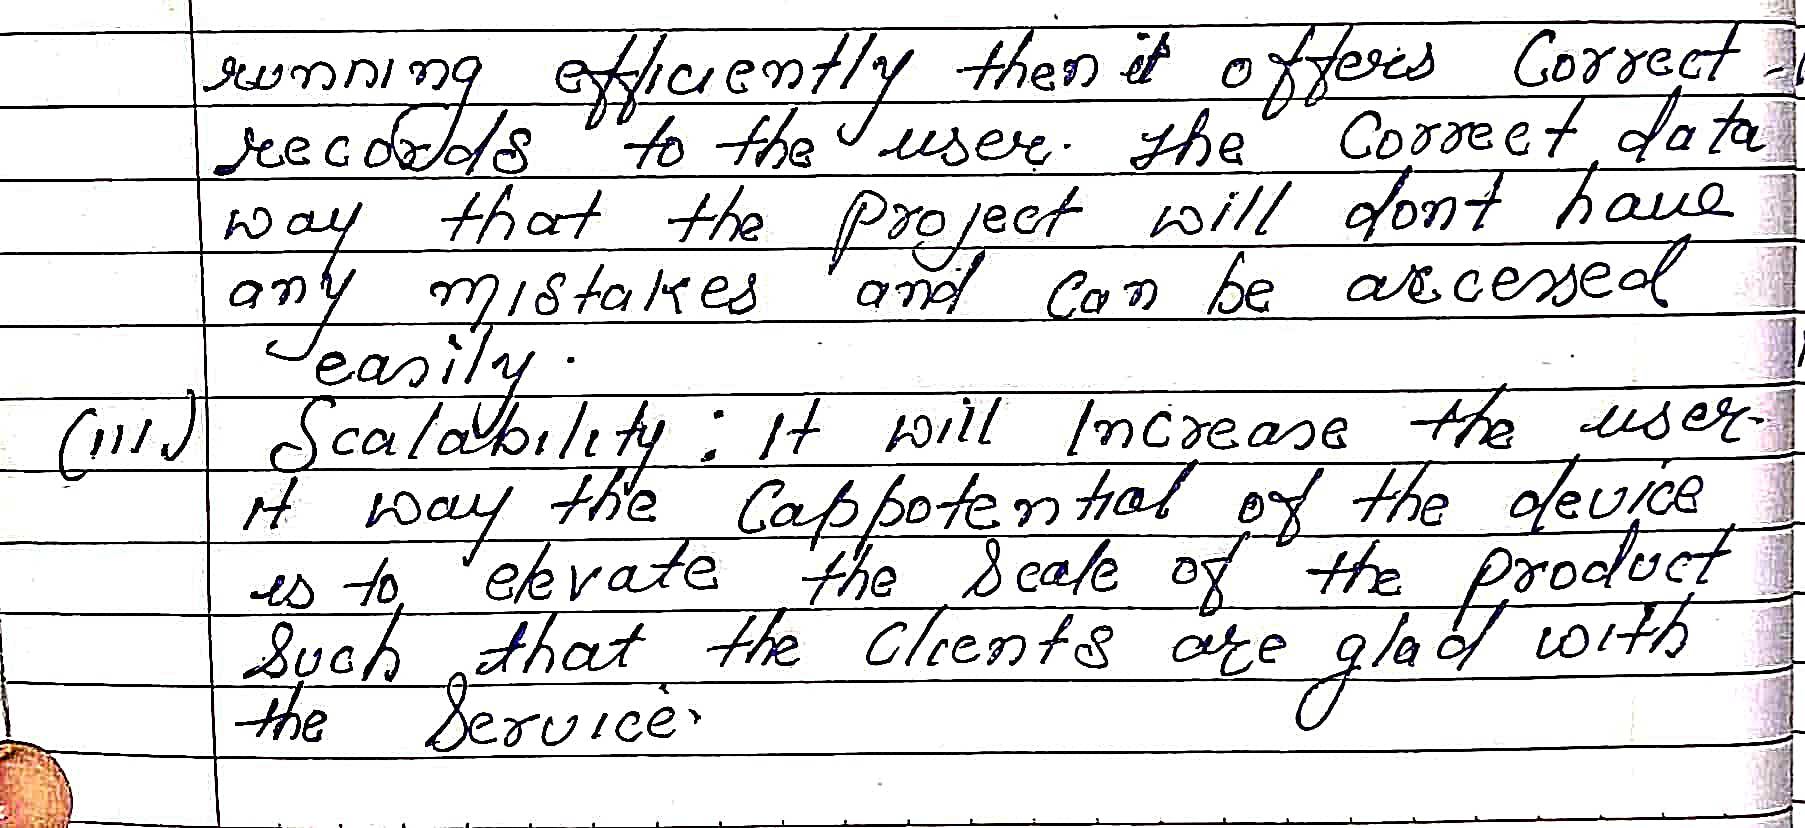 running efficiently then it offers Correct
records to the user. The Correct data
way that the project will dont have
any mistakes and can be accessed
easily.
(III.) Scalability : It will Increase the user.
it way the Cappotential of the device
is to elevate the Scale of the product
Such that the Clients are glad with
the Service.